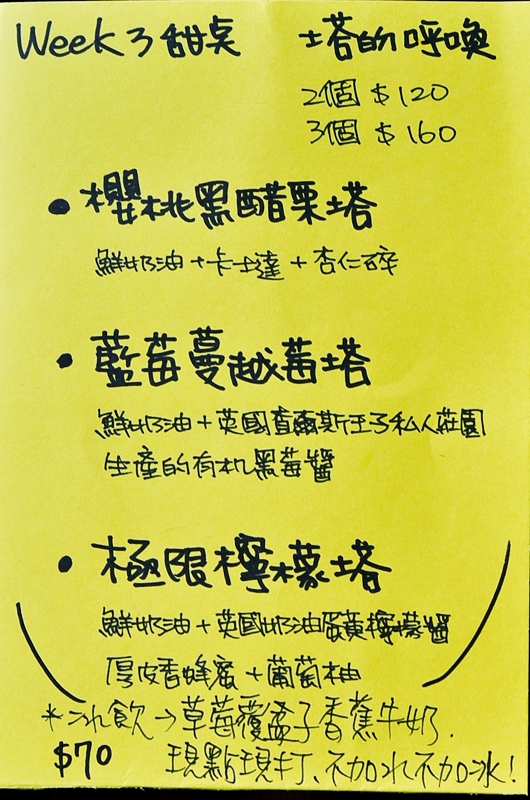 Week 3 甜桌 塔的呼喚
2個 $120
3個 $160
• 櫻桃黑醋栗塔
鮮奶油+卡士達+杏仁碎
• 藍莓蔓越莓塔
鮮奶油+英國查爾斯王子私人莊園
生產的有机黑莓醬
• 極限檸檬塔
鮮奶油+英國奶油蛋黃檸檬醬
厚皮香蜂蜜+葡萄柚
*冷飲→草莓覆盆子香蕉牛奶.
$70 現點現打、不加水不加冰!